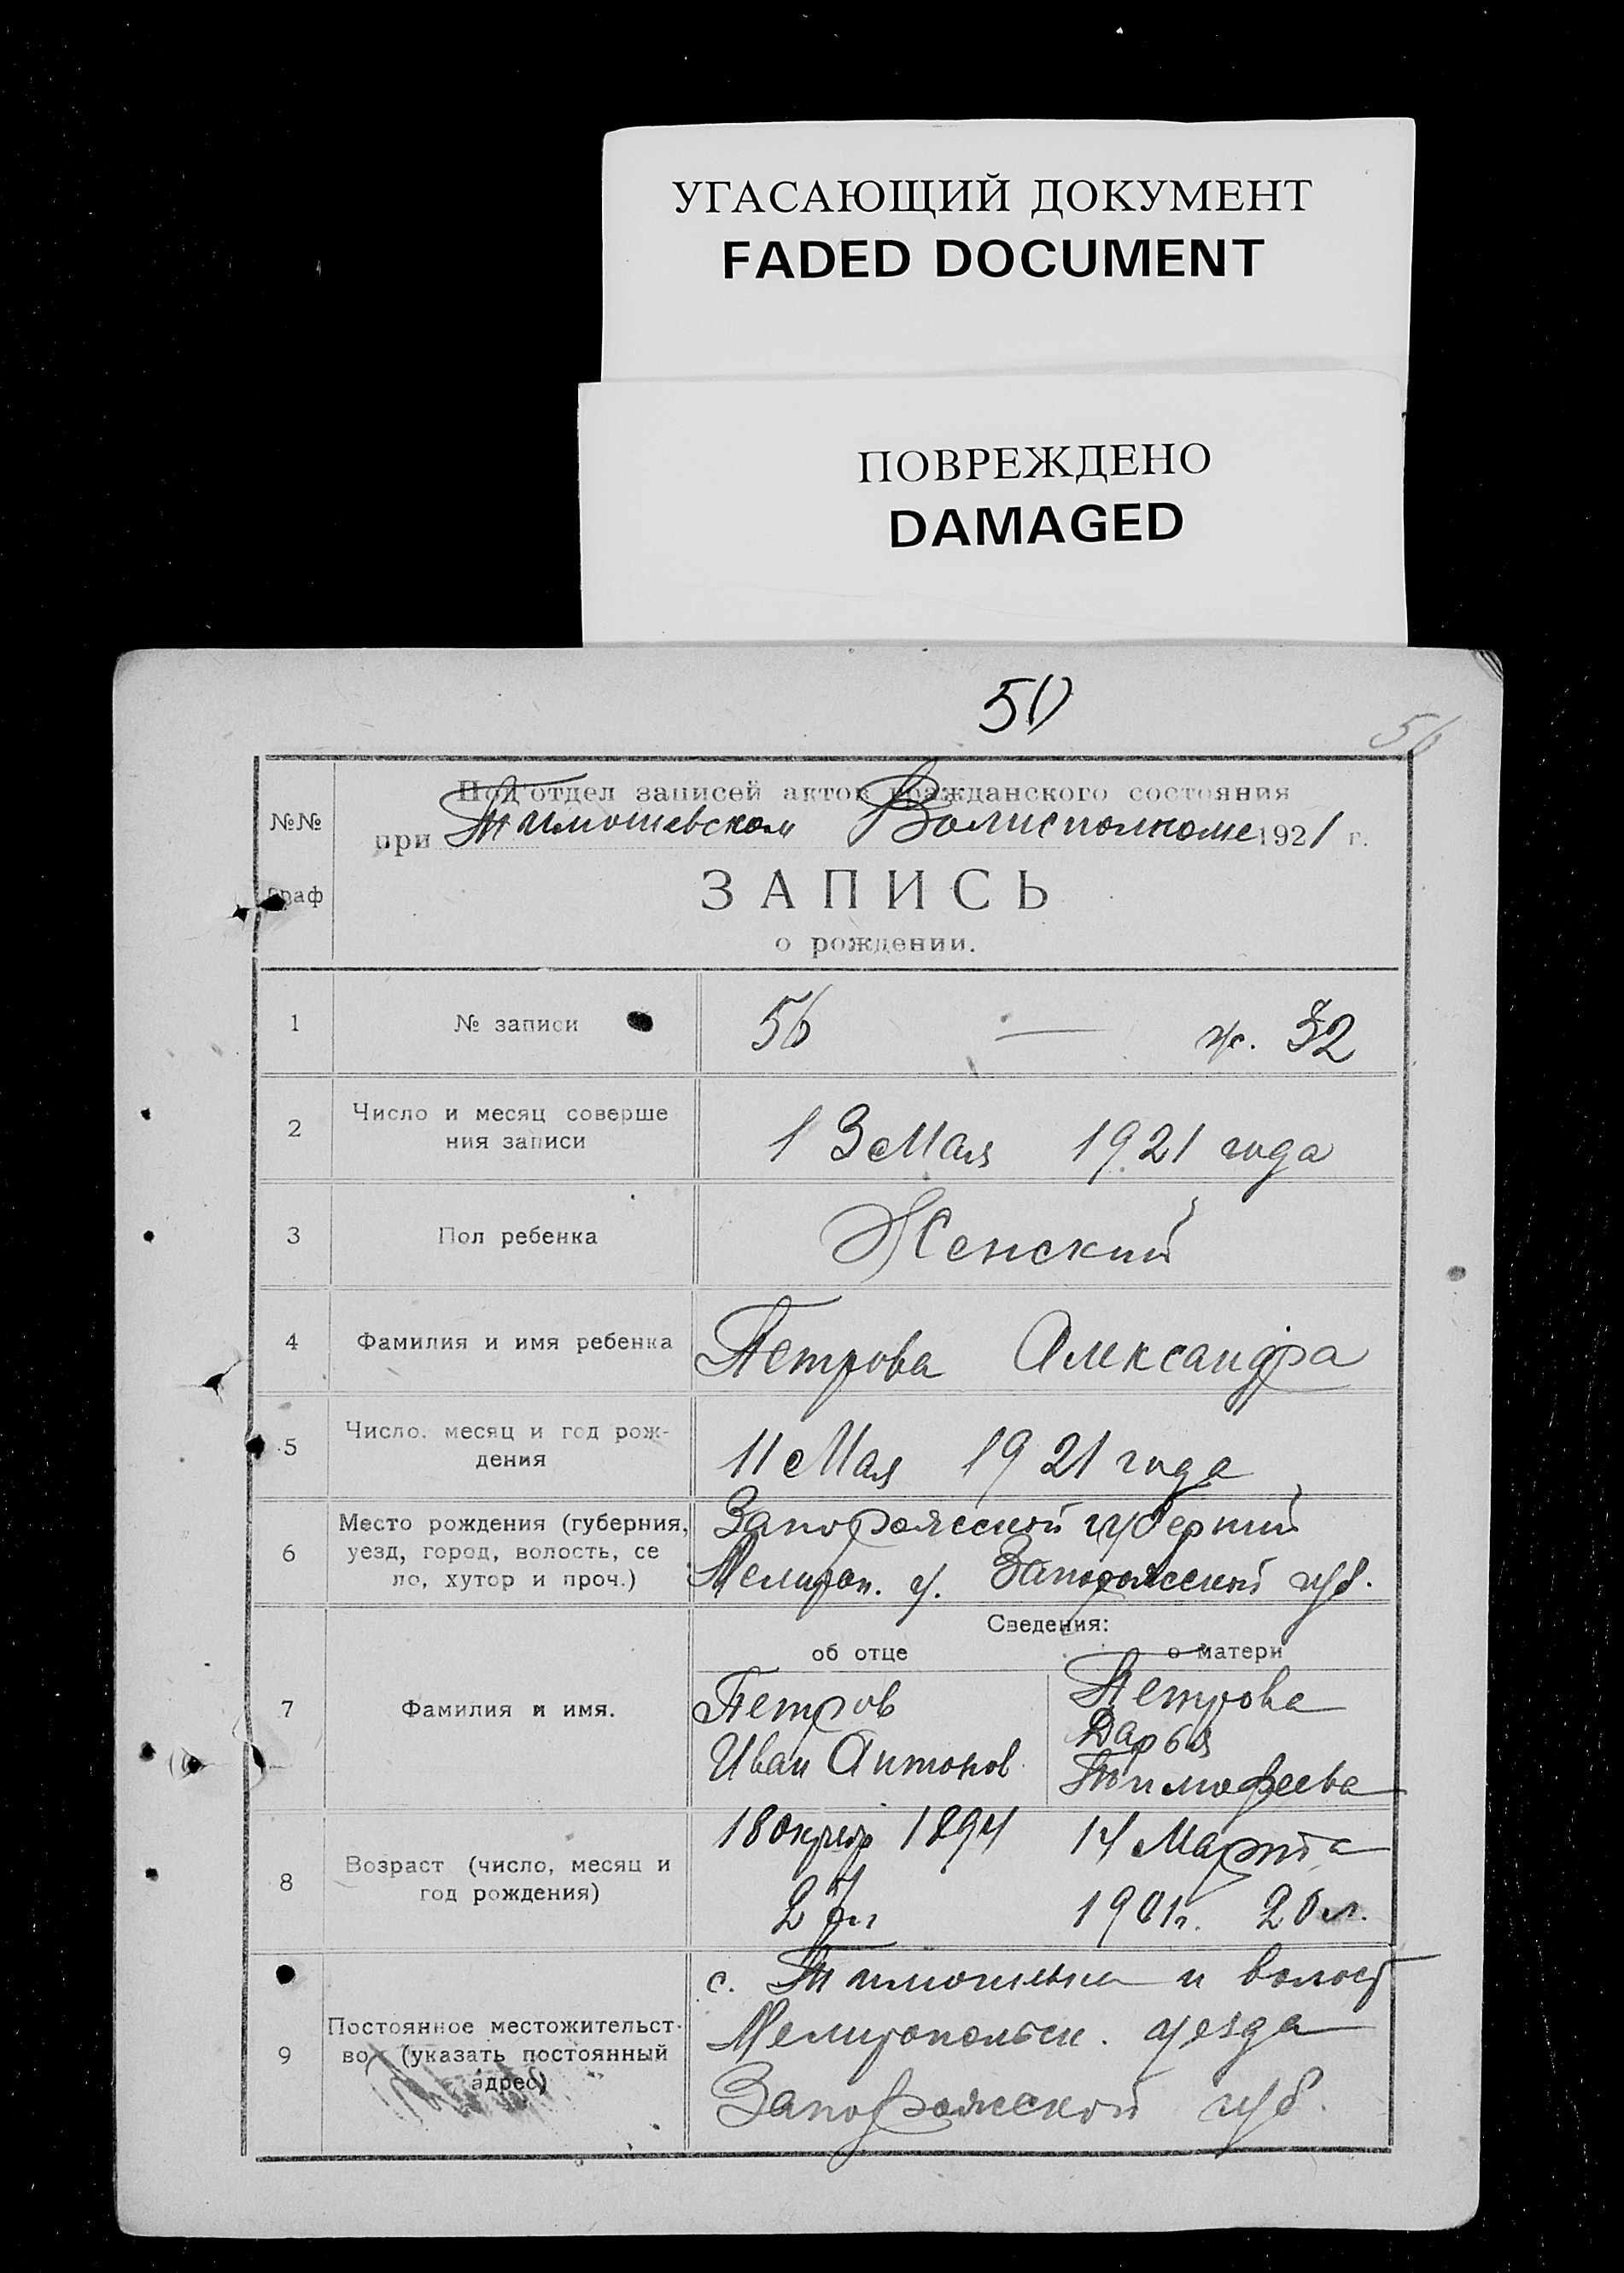 УГАСАЮЩИЙ ДОКУМЕНТ
FADED DOCUMENT
ПОВРЕЖДЕНО
DAMAGED
50
56
№№
граф
Под'отдел записей актов гражданского состояния
при Тимошевском Волисполкоме 1921 г.
ЗАПИСЬ
о рождении.
1
№ записи
56 — ж. 32
2
Число и месяц соверше
ния записи
13 Мая 1921 года
3
Пол ребенка
Женский
4
Фамилия и имя ребенка
Петрова Александра
5
Число, месяц и год рож-
дения
11 Мая 1921 года
6
Место рождения (губерния,
уезд, город, волость, се
ло, хутор и проч.)
Запорожской губернии
Мелитоп. у. Запорожской губ.
Сведения:
об отце
о матери
7
Фамилия и имя.
Петров
Иван Антонов
Петрова
Дарья
Тимофеева
8
Возраст (число, месяц и
год рождения)
18 1894
14 Марта
1901г. 20 л.
9
Постоянное местожительст-
во (указать постоянный
адрес)
с. Тимошевка и волост
Мелитопольск. уезда
Запорожской губ.